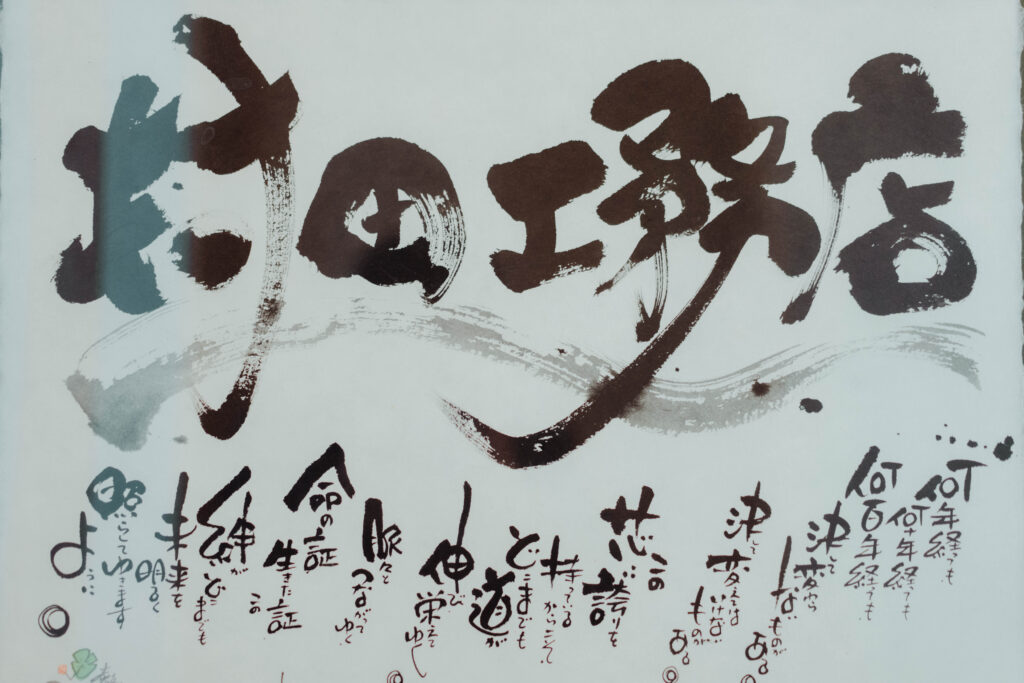 村田工務店
何年経っても
何十年経っても
何百年経っても
決して変わら
ないものがある
決して変えては
いけないものがある
この
芯に誇りを
持っているからこそ
どこまでも
道が
伸び栄えてゆく
脈々とつながってゆく
命の証
生きた証
この
絆がどこまでも
未来を
明るく
照らしてゆきます
ように